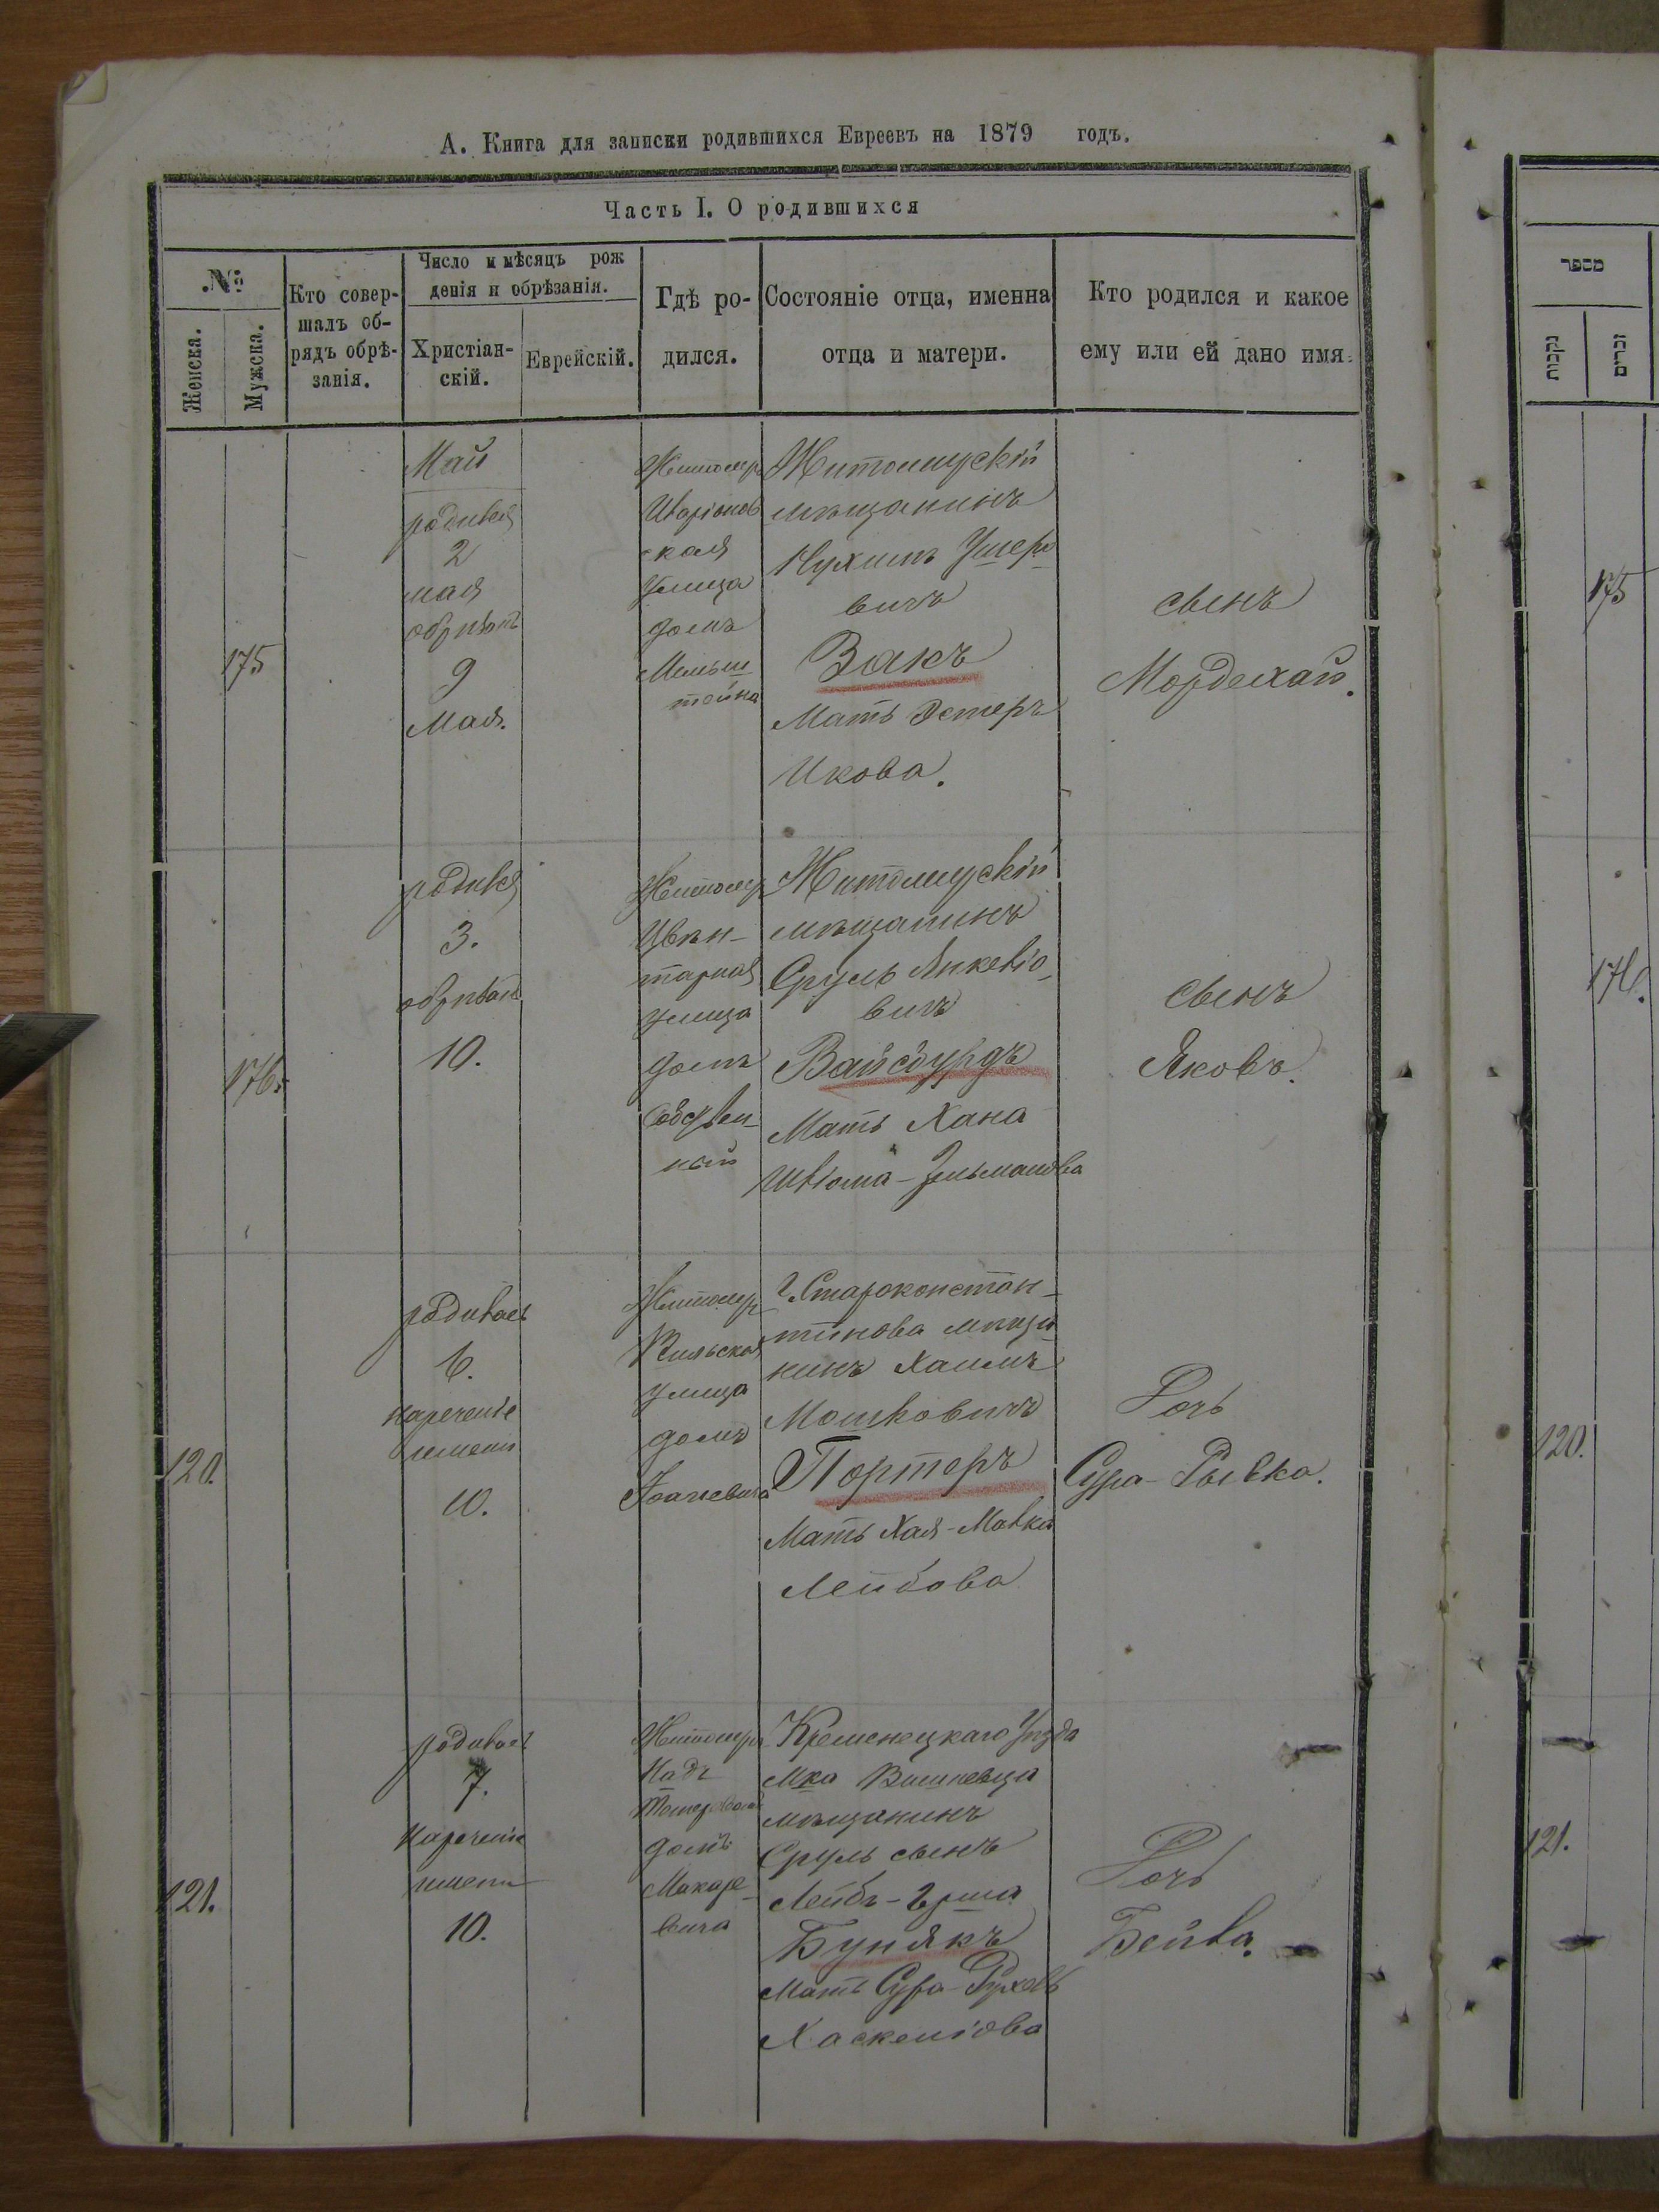 А. Книга для записки родившихся Евреевъ на 1879 годъ.
Часть I. О родившихся
№
Женска.
Мужска.
Кто совер-
шалъ об-
рядъ обрѣ-
занія.
Число и мѣсяцъ рож
денія и обрѣзанія.
Христіан-
скій.
Еврейскій.
Гдѣ ро-
дился.
Состояніе отца, именна
отца и матери.
Кто родился и какое
ему или ей дано имя.
175
Май
родився
2
мая
обрѣзанъ
9
Мая.
Житомир
ская
улица
домъ
Мильш
тейна
Житомирскій
мѣщанинъ
Нухимъ Ушеро
вичъ
Закъ
Мать Эстеръ
Икова.
сынъ
Мордехай.
176.
родився
3.
обрѣзанъ
10.
Житомир
тарная
улица
домъ
Собствен-
ный
Житомирскій
мѣщанинъ
Сруль Янкевіо-
вичъ
Вайсбурдъ
Мать Хана
Зельманова
сынъ
Яковъ.
120.
родилась
6.
нареченіе
имени
10.
Житомир
Вильская
улица
домъ
Г. Староконстан-
тинова мѣща
нинъ Хаимъ
Мошковичъ
Портеръ
Мать Хая-Малка
Лейбова
Дочь
Сура-Рывка.
121.
родилась
7.
нареченіе
имени
10.
Житомир
Надъ
домъ
Макаре-
вича
Кременецкаго Уѣзда
Мка Вишневца
мѣщанинъ
Сруль сынъ
Лейбъ-Герша
Бунякъ
Мать Сура-Рухель
Хаскеліова
Дочь
Бейла.
מספר
נקבות
זכרים
175
176.
120.
121.